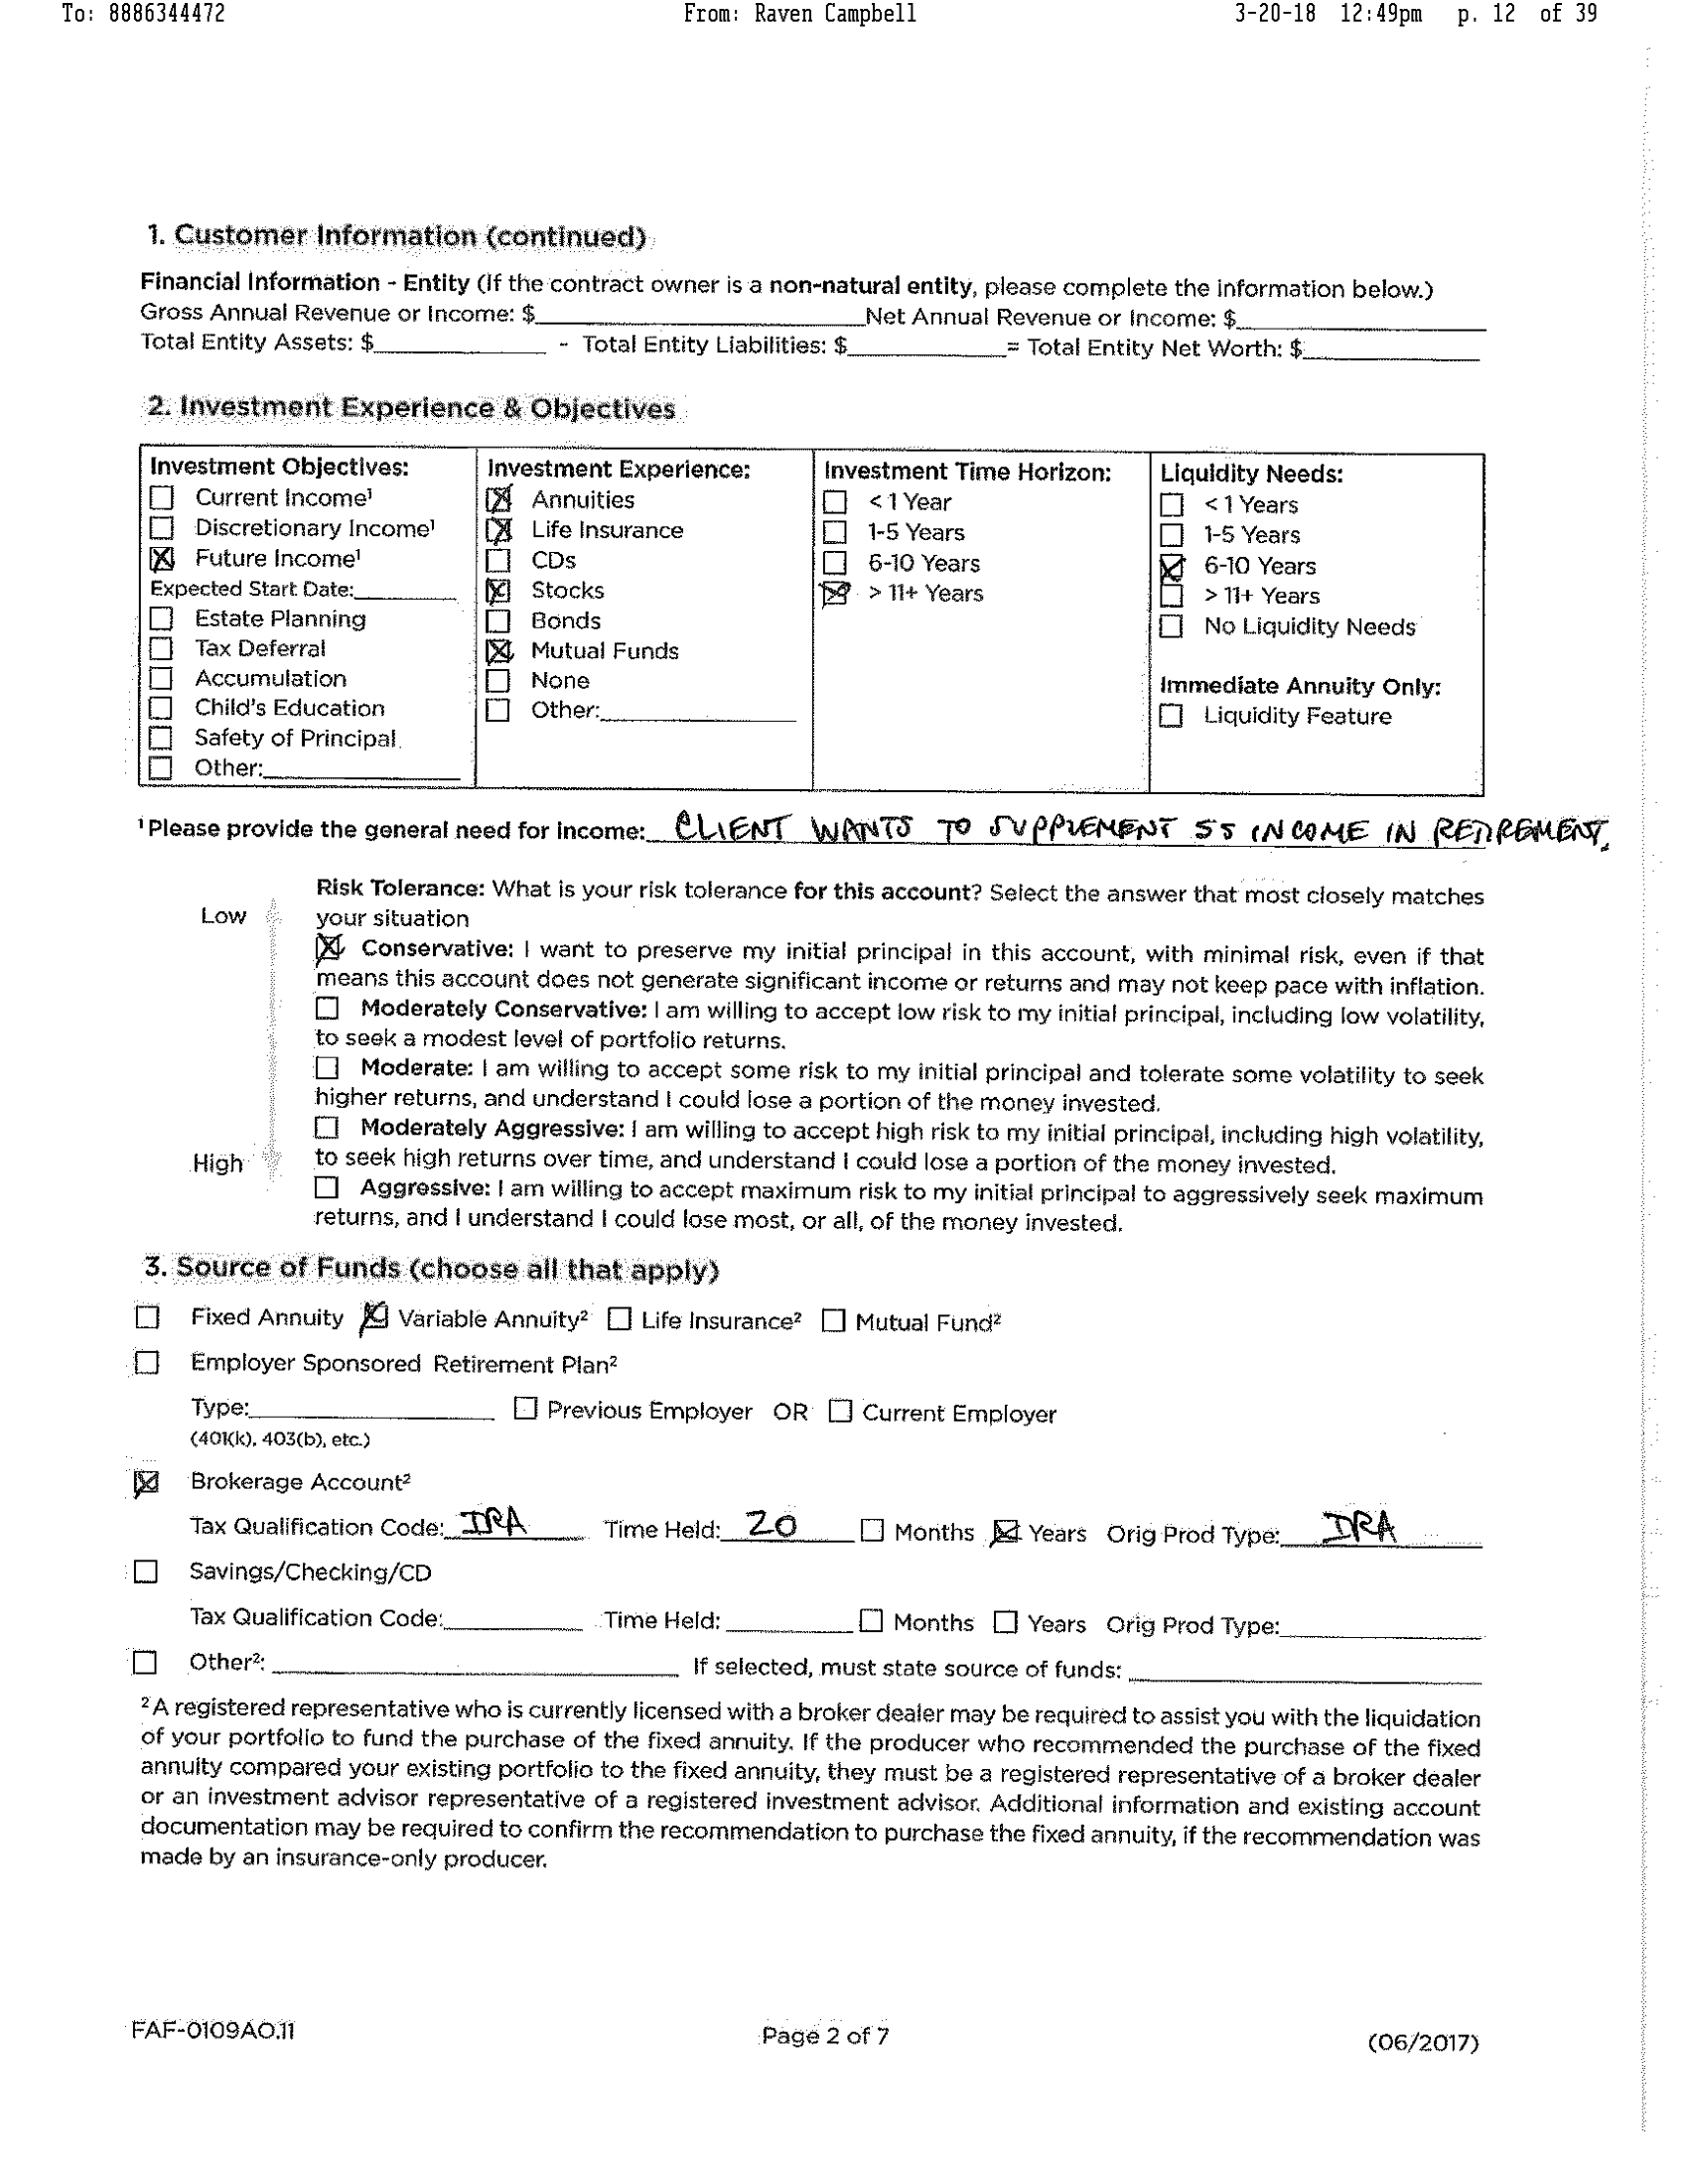 To: 8886344472 From: Raven Campbell 3-20-18 12:49pm p. 12 of 39
1. Customer Information (continued)
Financial Information - Entity (If the contract owner is a non-natural entity, please complete the information below.)
Gross Annual Revenue or Income: $ Net Annual Revenue or Income: $
Total Entity Assets: $ - Total Entity Liabilities: $ = Total Entity Net Worth: $
2. Investment Experience & Objectives
Investment Objectives:
☐ Current Income¹
☐ Discretionary Income¹
☒ Future Income¹
Expected Start Date:
☐ Estate Planning
☐ Tax Deferral
☐ Accumulation
☐ Child's Education
☐ Safety of Principal
☐ Other:
Investment Experience:
☒ Annuities
☒ Life Insurance
☐ CDs
☒ Stocks
☐ Bonds
☒ Mutual Funds
☐ None
☐ Other:
Investment Time Horizon:
☐ < 1 Year
☐ 1-5 Years
☐ 6-10 Years
☒ > 11+ Years
Liquidity Needs:
☐ < 1 Years
☐ 1-5 Years
☒ 6-10 Years
☐ > 11+ Years
☐ No Liquidity Needs
Immediate Annuity Only:
☐ Liquidity Feature
¹ Please provide the general need for income: CLIENT WANTS TO SUPPLEMENT SS INCOME IN RETIREMENT.
Risk Tolerance: What is your risk tolerance for this account? Select the answer that most closely matches
Low your situation
☒ Conservative: I want to preserve my initial principal in this account, with minimal risk, even if that
means this account does not generate significant income or returns and may not keep pace with inflation.
☐ Moderately Conservative: I am willing to accept low risk to my initial principal, including low volatility,
to seek a modest level of portfolio returns.
☐ Moderate: I am willing to accept some risk to my initial principal and tolerate some volatility to seek
higher returns, and understand I could lose a portion of the money invested.
☐ Moderately Aggressive: I am willing to accept high risk to my initial principal, including high volatility,
High to seek high returns over time, and understand I could lose a portion of the money invested.
☐ Aggressive: I am willing to accept maximum risk to my initial principal to aggressively seek maximum
returns, and I understand I could lose most, or all, of the money invested.
3. Source of Funds (choose all that apply)
☐ Fixed Annuity ☒ Variable Annuity² ☐ Life Insurance² ☐ Mutual Fund²
☐ Employer Sponsored Retirement Plan²
Type: ☐ Previous Employer OR ☐ Current Employer
(401(k), 403(b), etc.)
☒ Brokerage Account²
Tax Qualification Code: IRA Time Held: 20 ☐ Months ☒ Years Orig Prod Type: IRA
☐ Savings/Checking/CD
Tax Qualification Code: Time Held: ☐ Months ☐ Years Orig Prod Type:
☐ Other²: If selected, must state source of funds:
² A registered representative who is currently licensed with a broker dealer may be required to assist you with the liquidation
of your portfolio to fund the purchase of the fixed annuity. If the producer who recommended the purchase of the fixed
annuity compared your existing portfolio to the fixed annuity, they must be a registered representative of a broker dealer
or an investment advisor representative of a registered investment advisor. Additional information and existing account
documentation may be required to confirm the recommendation to purchase the fixed annuity, if the recommendation was
made by an insurance-only producer.
FAF-0109AO.11 Page 2 of 7 (06/2017)